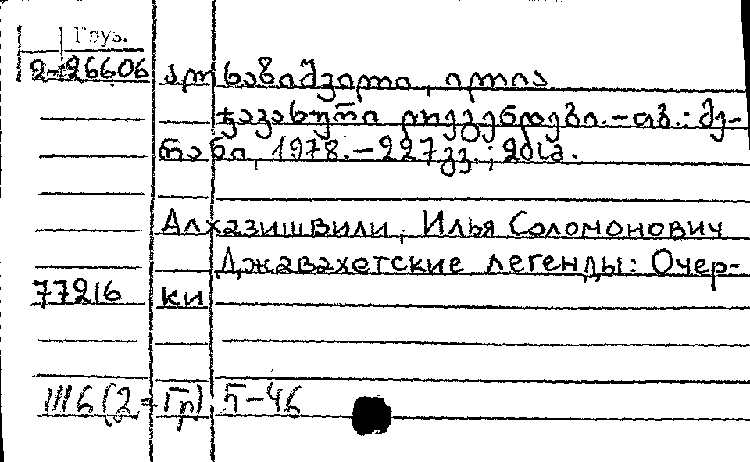 Груз.
2-26606 ალხაზიშვილი, ილია
ჯავახური ლეგენდები.-თბ.: მე-
რანი, 1978.-227გვ.; 20სმ.
Алхазишвили, Илья Соломонович
Джавахетские легенды: Очер-
77216 ки
Ш6(2=Гр) 5-46